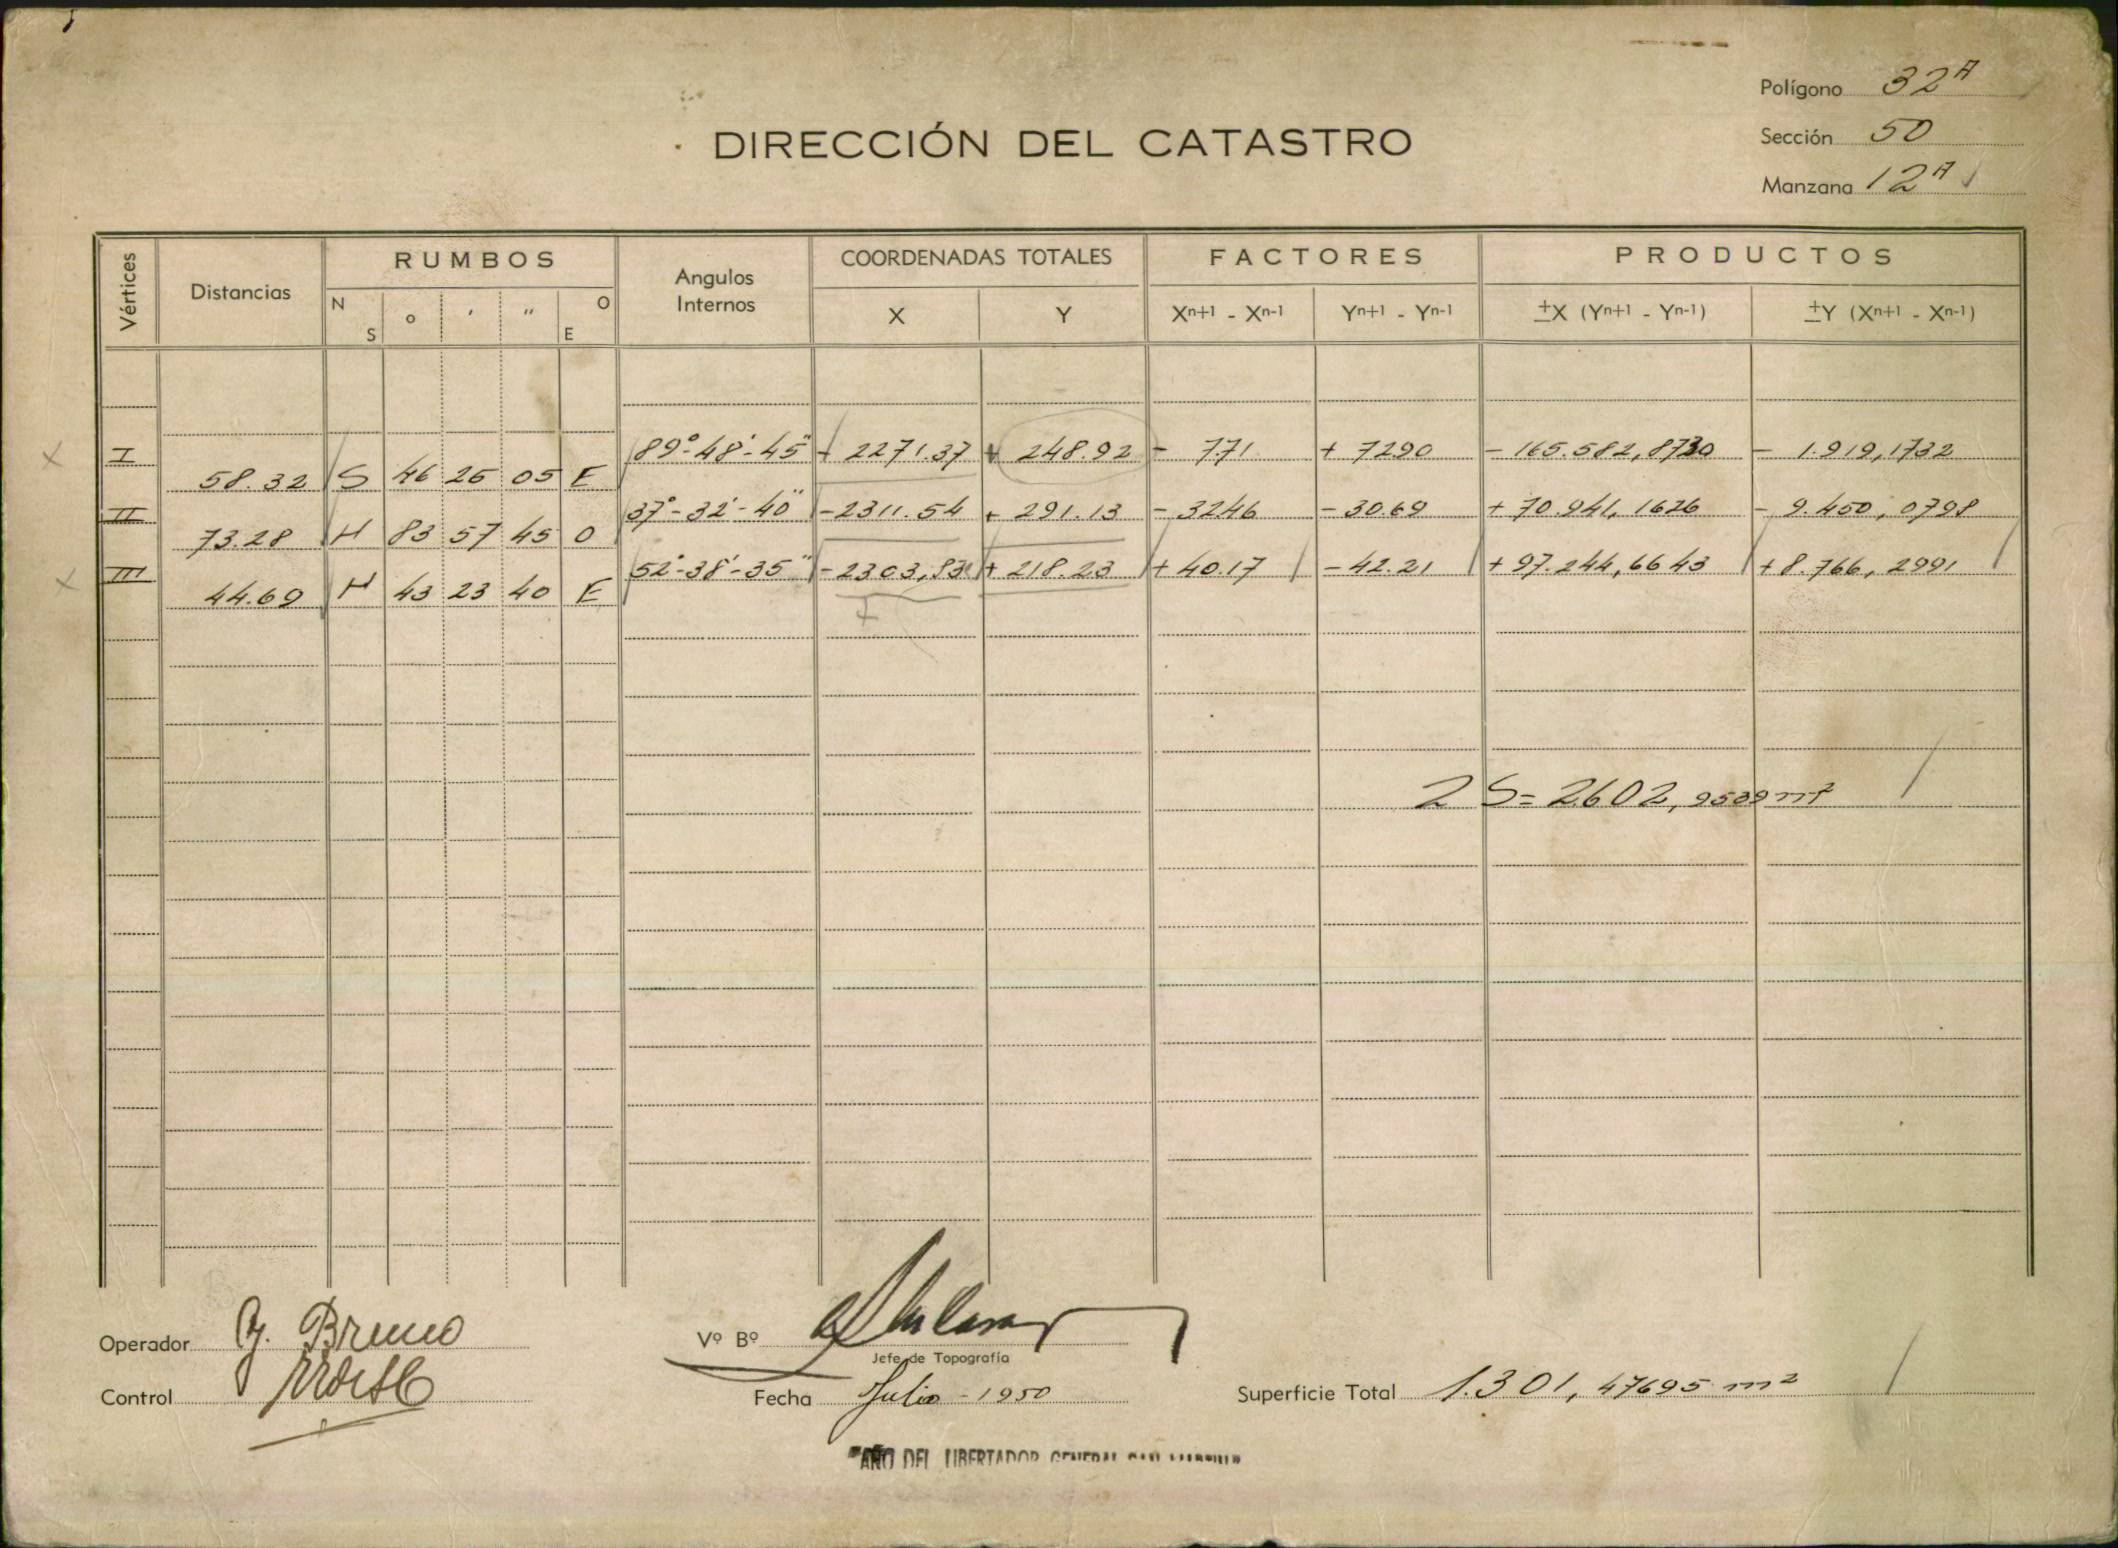 Polígono 32A
DIRECCIÓN DEL CATASTRO
Sección 50
Manzana 12A
Vértices Distancias RUMBOS Angulos Internos COORDENADAS TOTALES FACTORES PRODUCTOS
N S o ' " O E X Y Xn+1 - Xn-1 Yn+1 - Yn-1 ±X (Yn+1 - Yn-1) ±Y (Xn+1 - Xn-1)
I 89°-48'-45" - 2271.37 + 248.92 - 7.71 + 72.90 - 165.582,8730 - 1.919,1732
58.32 S 46 26 05 E
II 37°-32'-40" - 2311.54 + 291.13 - 32.46 - 30.69 + 70.941,1626 - 9.450,0798
73.28 N 83 57 45 O
III 52°-38'-35" - 2303,83 + 218.23 + 40.17 - 42.21 + 97.244,6643 + 8.766,2991
44.69 N 43 23 40 E
2 S = 2.602,9539 m²
Operador Bruno
Vº Bº
Jefe de Topografía
Control
Fecha Julio - 1950
Superficie Total 1.301,47695 m²
"AÑO DEL LIBERTADOR GENERAL SAN MARTIN"